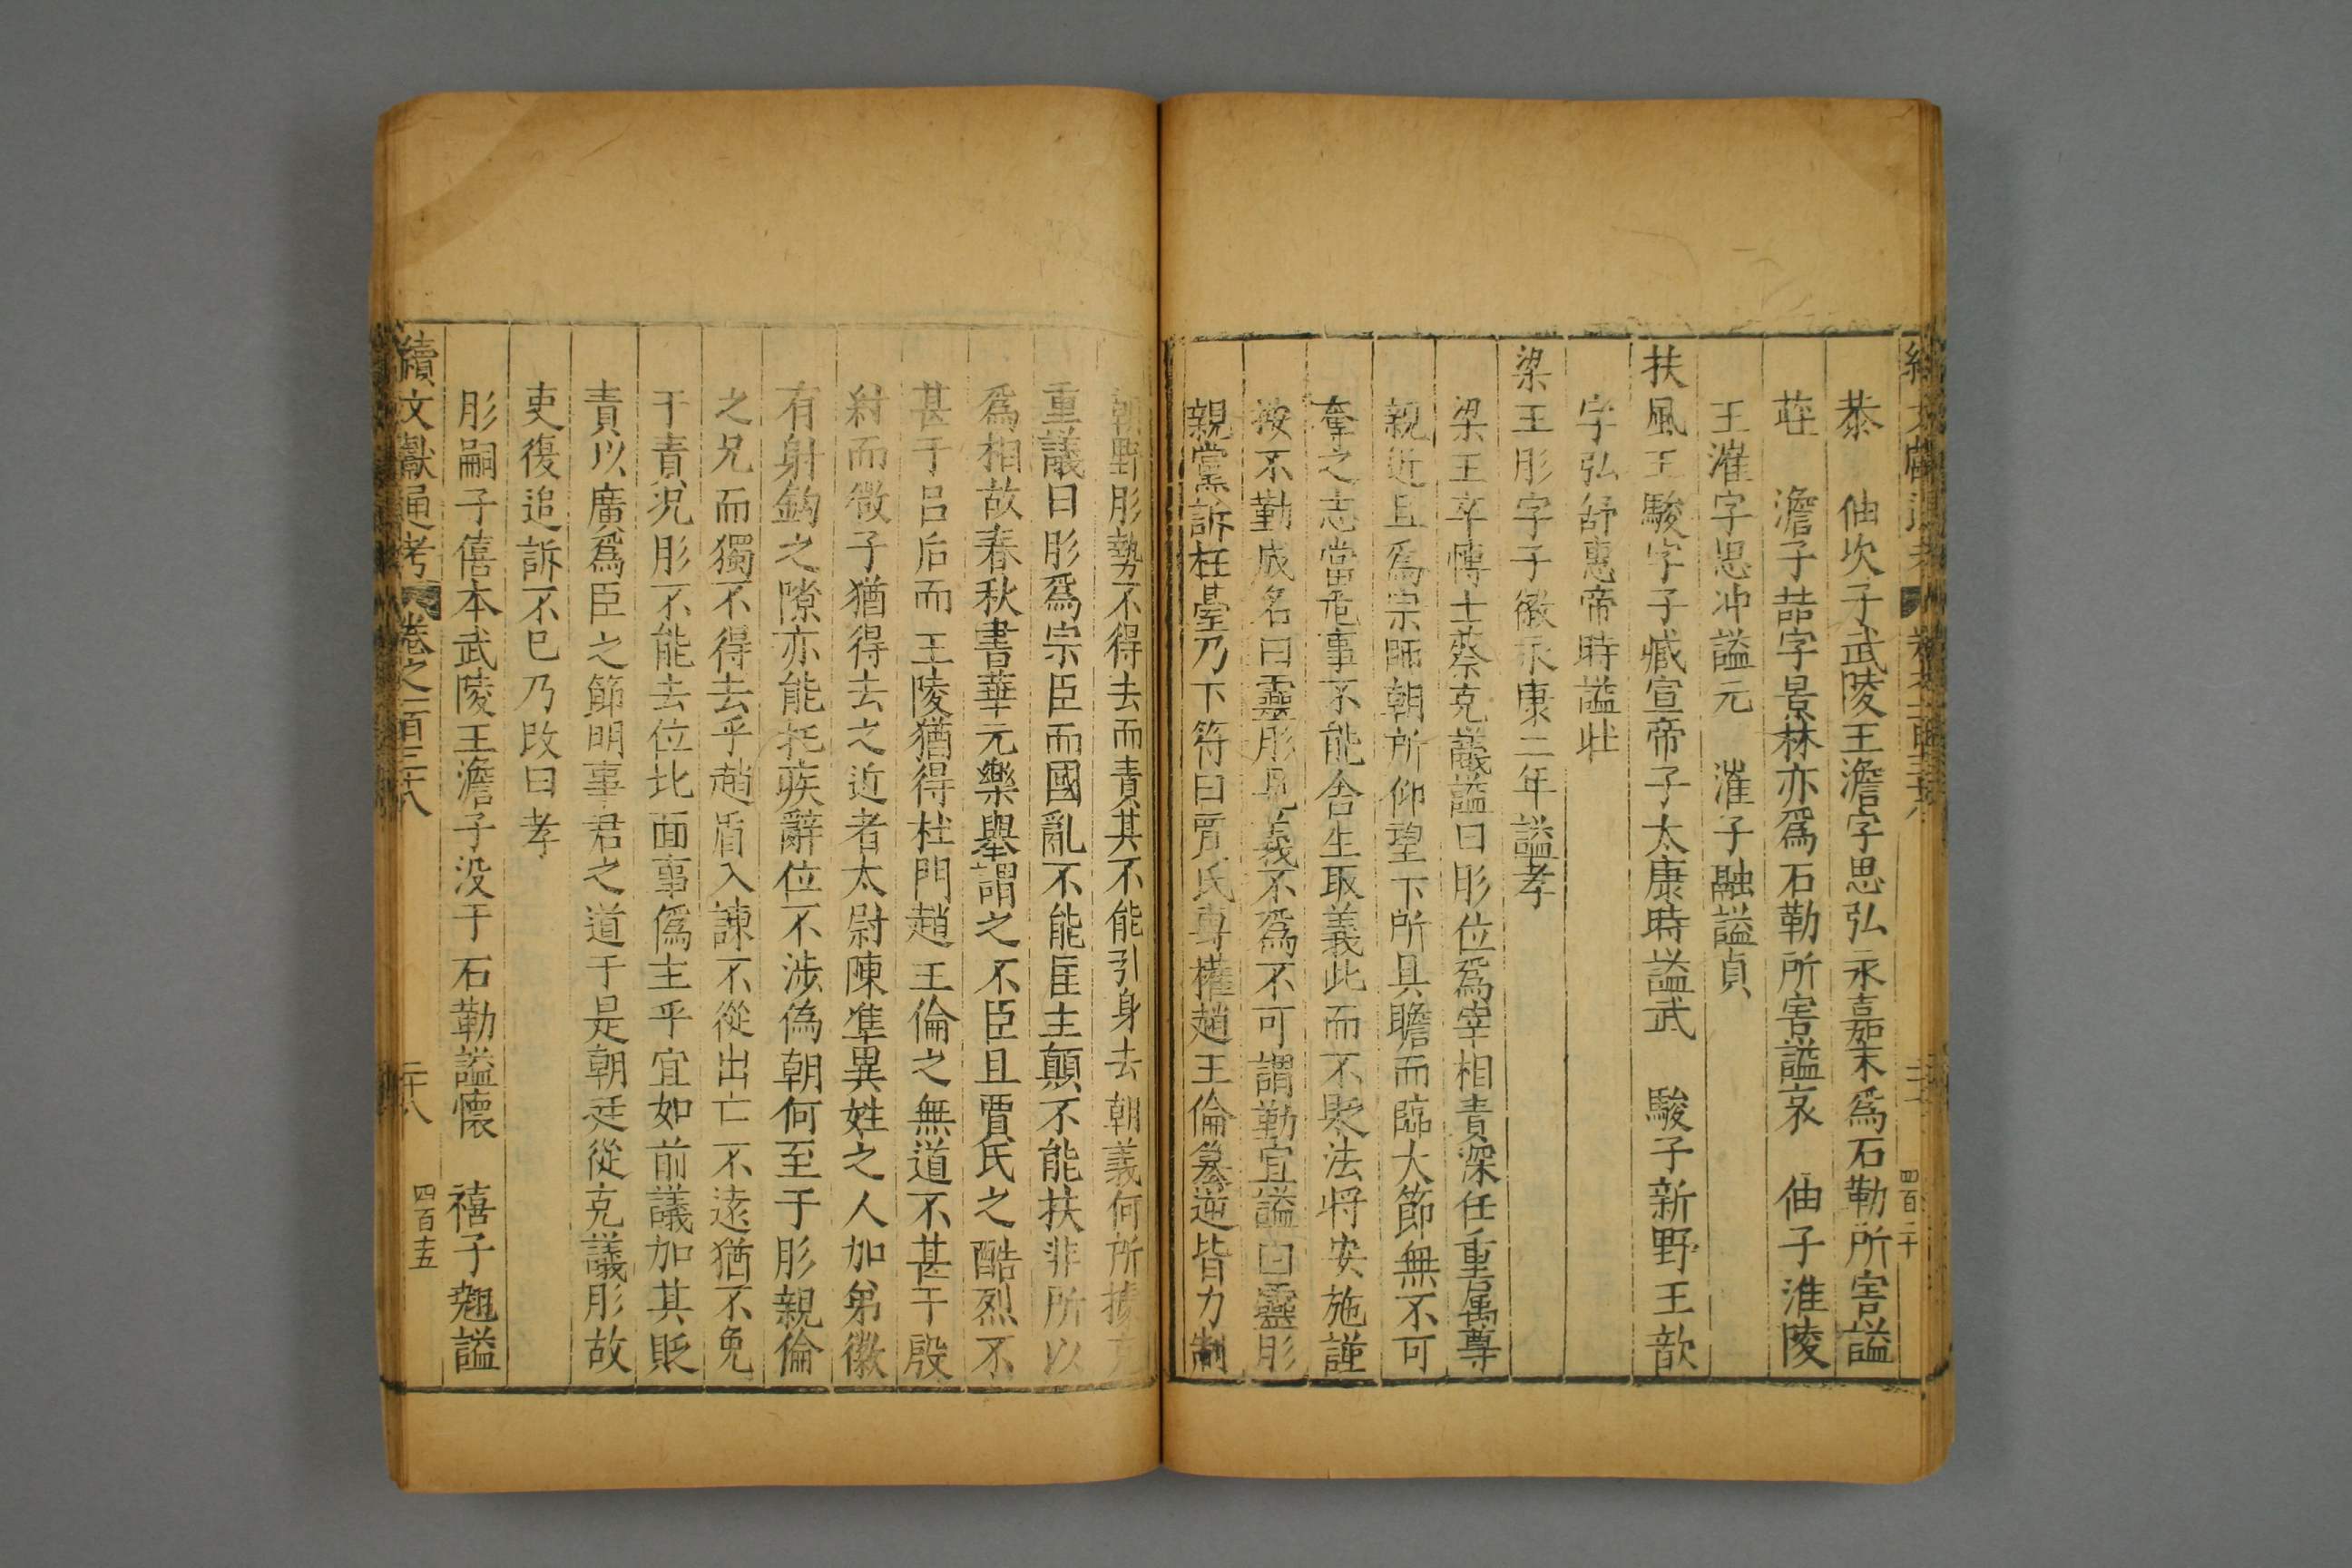 續文獻通考 卷之一百三十八
四百二十
恭 伷次子武陵王澹字思弘永嘉末爲石勒所害謚
莊 澹子喆字景林亦爲石勒所害謚哀 伷子淮陵
王漼字思冲謚元 漼子融謚貞
扶風王駿字子臧宣帝子太康時謚武 駿子新野王歆
字弘舒惠帝時謚壯
梁王肜字子徽永康二年謚孝
梁王卒博士蔡克議謚曰肜位爲宰相責深任重屬尊
親近且爲宗師朝所仰望下所具瞻而臨大節無不可
奪之志當危事不能舍生取義此而不貶法將安施謹
按不勤成名曰靈肜見義不爲不可謂勤宜謚曰靈肜
親黨訴枉臺乃下符曰賈氏專權趙王倫篡逆皆力制
朝野肜勢不得去而責其不能引身去朝義何所據克
重議曰肜爲宗臣而國亂不能匡主顛不能扶非所以
爲相故春秋書華元樂舉謂之不臣且賈氏之酷烈不
甚于呂后而王陵猶得杜門趙王倫之無道不甚于殷
紂而微子猶得去之近者太尉陳準異姓之人加弟徽
有射鈎之隙亦能托疾辭位不涉偽朝何至于肜親倫
之兄而獨不得去乎趙盾入諫不從出亡不遠猶不免
于責况肜不能去位北面事僞主乎宜如前議加其貶
責以廣爲臣之節明事君之道于是朝廷從克議肜故
吏復追訴不已乃改曰孝
肜嗣子僖本武陵王澹子没于石勒謚懷 禧子翹謚
續文獻通考 卷之一百三十八 二十八 四百十五